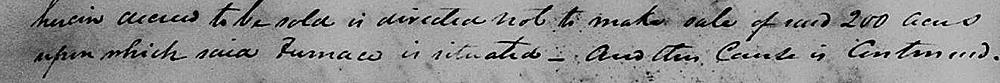 herein decreed to be sold is directed not to make sale of said 200 acres
upon which said Furnace is situated - And this Cause is Continued.